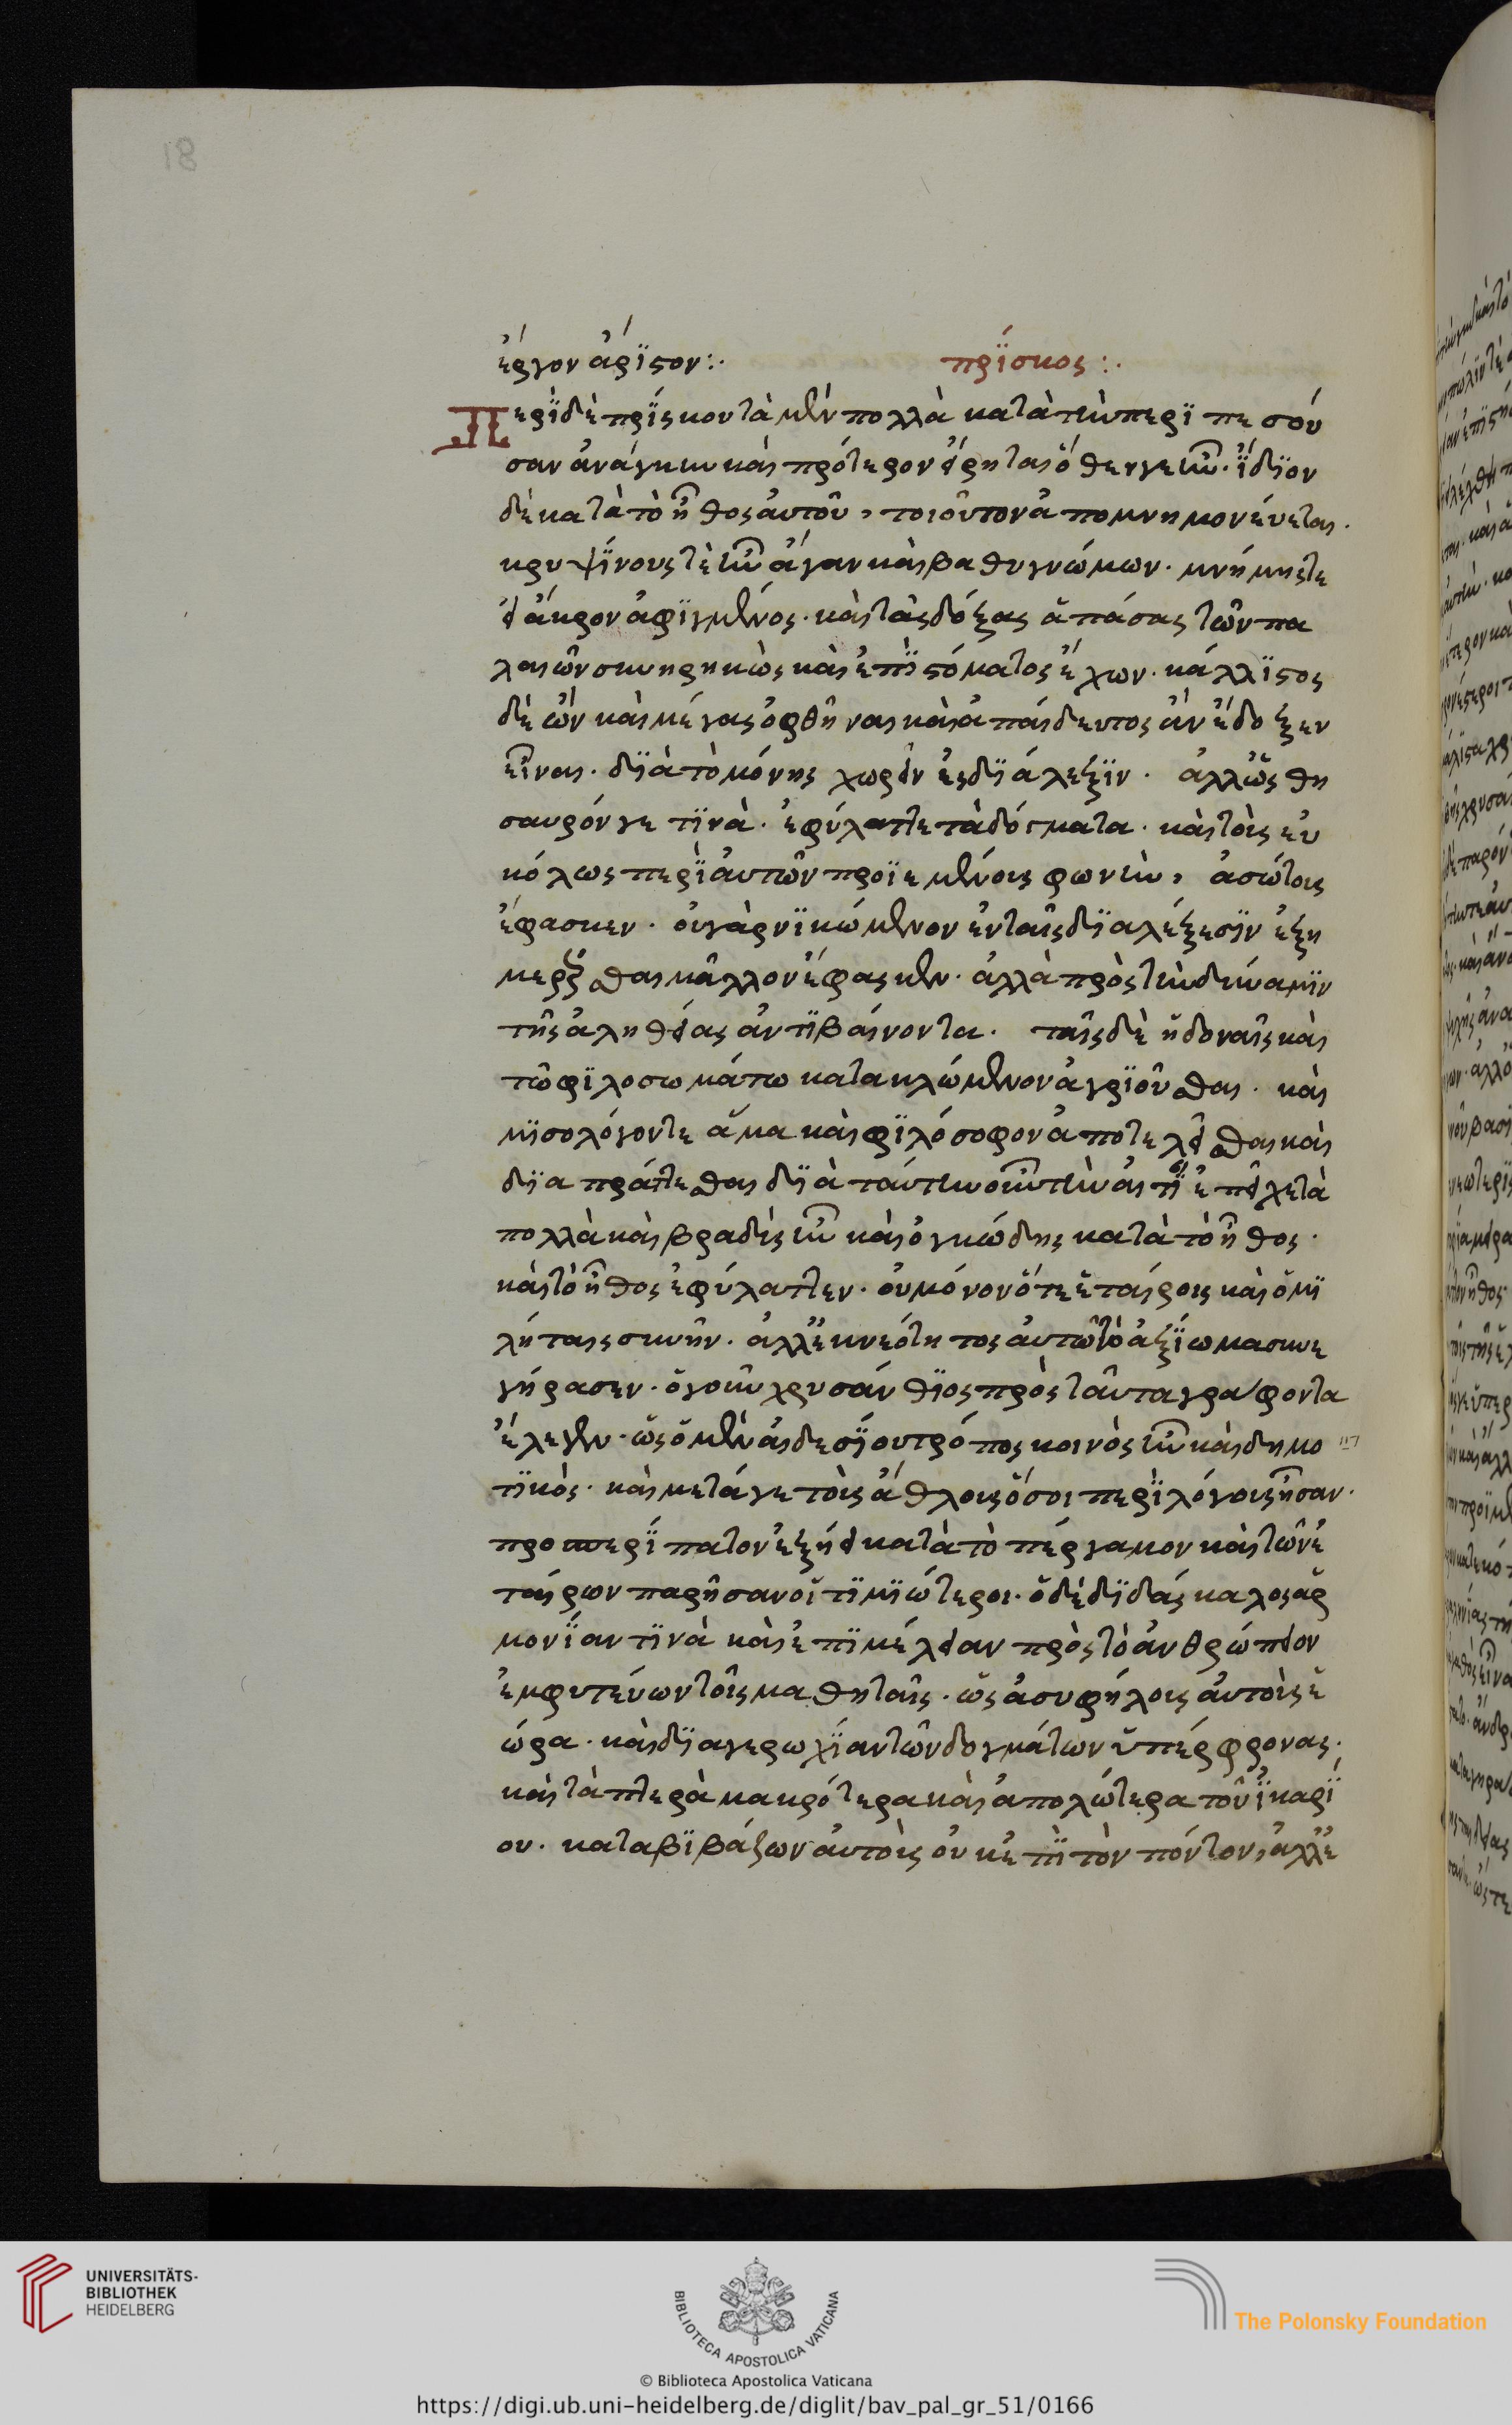 18
ἔργον ἄριστον:. πρίσκος:.
Περὶ δὲ πρίσκου τὰ μὲν πολλὰ κατὰ τὴν περιπεσοῦ
σαν ἀνάγκην καὶ πρότερον εἴρηται ὅθεν γε ἦν. ἴδιον
δὲ κατὰ τὸ ἦθος αὐτοῦ, τοιοῦτον ἀπομνημονεύεται.
κρυψίνους τὲ ἦν ἄγαν καὶ βαθυγνώμων. μνήμης τε
εἰς ἄκρον ἀφιγμένος. καὶ τὰς δόξας ἁπάσας τῶν πα
λαιῶν συνηρηκὼς καὶ ἐπὶ στόματος ἔχων. κάλλιστος
δὲ ὢν καὶ μέγας ὀφθῆναι καὶ ἀπαίδευτος ἂν ἔδοξεν
εἶναι. διὰ τὸ μόγις χωρεῖν ἐς διάλεξιν. ἀλλ' ὡς θη
σαυρόν γε τινὰ. ἐφύλαττε τὰ δόγματα. καὶ τοὺς εὐ
κόλως περὶ αὐτῶν προϊεμένους φωνὴν, ἀσώτους
ἔφασκεν. οὐ γὰρ νικώμενον ἐν ταῖς διαλέξεσιν ἐξη
μεροῦσθαι μᾶλλον ἔφασκεν. ἀλλὰ πρὸς τὴν δύναμιν
τῆς ἀληθείας ἀντιβαίνοντα. ταῖς δὲ ἡδοναῖς καὶ
τῷ φιλοσωμάτῳ κατακλώμενον ἀγριοῦσθαι. καὶ
μισολόγον τε ἅμα καὶ φιλόσοφον ἀποτελεῖσθαι καὶ
διαπράττεσθαι διὰ ταύτην οὖν τὴν αἰτίαν ἐπεῖχε τὰ
πολλὰ καὶ βραδὺς ἦν καὶ ὀγκώδης κατὰ τὸ ἦθος.
καὶ τὸ ἦθος ἐφύλαττεν. οὐ μόνον ὅτε ἑταίροις καὶ ὁμι
ληταῖς συνῆν. ἀλλ' ἐκ νεότητος αὐτῷ τὸ ἀξίωμα συνε
γήρασεν. ὁ γοῦν χρυσάνθιος πρὸς ταῦτα γράφοντα
ἔλεγεν. ὡς ὁ μὲν αἰδεσίου τρόπος κοινὸς ἦν καὶ δημο
τικὸς. καὶ μετά γε τοὺς ἄθλους ὅσοι περὶ λόγους ἦσαν.
προ περίπατον ἐξήει κατὰ τὸ πέργαμον καὶ τῶν ἑ
ταίρων παρῆσαν οἱ τιμιώτεροι. ὁ δὲ διδάσκαλος ἁρ
μονίαν τινὰ καὶ ἐπιμέλειαν πρὸς τὸ ἀνθρώπειον
ἐμφυτεύων τοῖς μαθηταῖς. ὡς ἀσυφήλους αὐτοὺς ἑ
ώρα. καὶ δι ἀγερωχίαν τῶν δογμάτων ὑπέρφρονας.
καὶ τὰ πτερὰ μακρότερα καὶ ἁπαλώτερα τοῦ ἰκαρί
ου. καταβιβάζων αὐτοὺς οὐκ ἐπὶ τὸν πόντον, ἀλλ' ἐ
UNIVERSITÄTS-
BIBLIOTHEK
HEIDELBERG
BIBLIOTECA APOSTOLICA VATICANA
The Polonsky Foundation
© Biblioteca Apostolica Vaticana
https://digi.ub.uni-heidelberg.de/diglit/bav_pal_gr_51/0166